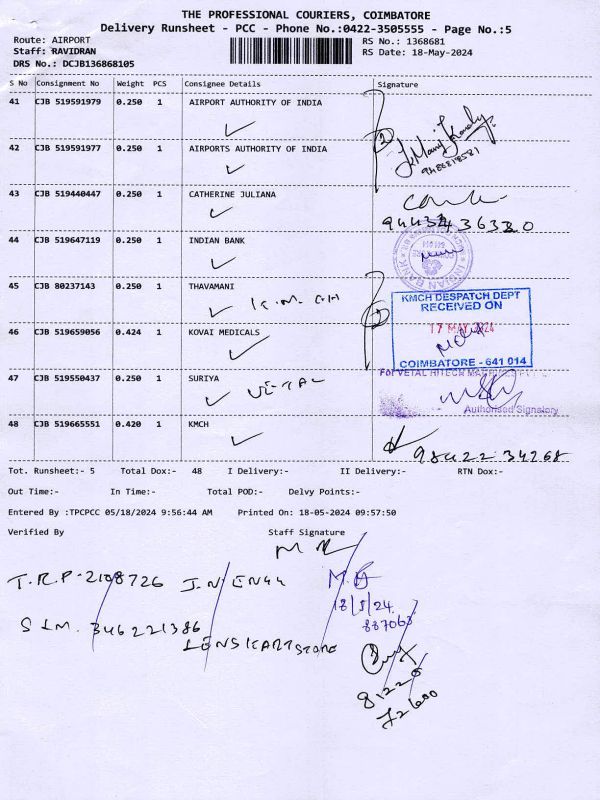 THE PROFESSIONAL COURIERS, COIMBATORE
Delivery Runsheet - PCC - Phone No.:0422-3505555 - Page No.:5
Route: AIRPORT RS No.: 1368681
Staff: RAVIDRAN RS Date: 18-May-2024
DRS No.: DCJB136868105
S No Consignment No Weight PCS Consignee Details Signature
41 CJB 519591979 0.250 1 AIRPORT AUTHORITY OF INDIA
42 CJB 519591977 0.250 1 AIRPORTS AUTHORITY OF INDIA
43 CJB 519440447 0.250 1 CATHERINE JULIANA
44 CJB 519647119 0.250 1 INDIAN BANK
INDIAN BANK
45 CJB 80237143 0.250 1 THAVAMANI
KMCH DESPATCH DEPT
RECEIVED ON
17 MAY 2024
COIMBATORE - 641 014
46 CJB 519659056 0.424 1 KOVAI MEDICALS
For VETAL HITECH
47 CJB 519550437 0.250 1 SURIYA
VETAL
Authorised Signatory
48 CJB 519665551 0.420 1 KMCH
98422 34268
Tot. Runsheet:- 5 Total Dox:- 48 I Delivery:- II Delivery:- RTN Dox:-
Out Time:- In Time:- Total POD:- Delvy Points:-
Entered By :TPCPCC 05/18/2024 9:56:44 AM Printed On: 18-05-2024 09:57:50
Verified By Staff Signature
T.R.P-2108726
18/5/24.
887063
SIM. 346221386
LENSKART STORE